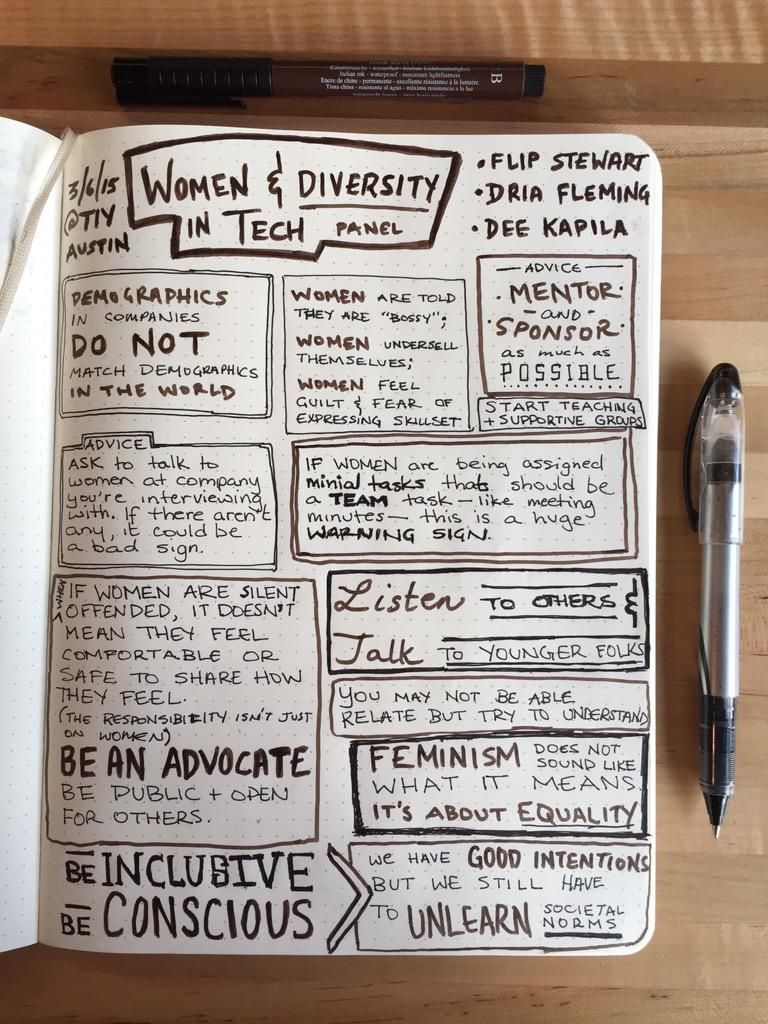 Künstlertusche - wasserfest - höchste Lichtbeständigkeit
Indian ink - waterproof - maximum lightfastness
Encre de chine - permanente - excellente résistance à la lumière
Tinta china - resistente al agua - máxima resistencia a la luz
B
3/6/15
@TIY
AUSTIN
WOMEN & DIVERSITY
IN TECH PANEL
• FLIP STEWART
• DRIA FLEMING
• DEE KAPILA
DEMOGRAPHICS
IN COMPANIES
DO NOT
MATCH DEMOGRAPHICS
IN THE WORLD
WOMEN ARE TOLD
THEY ARE "BOSSY";
WOMEN UNDERSELL
THEMSELVES;
WOMEN FEEL
GUILT & FEAR OF
EXPRESSING SKILLSET
— ADVICE —
• MENTOR •
- AND -
• SPONSOR •
as much as
POSSIBLE
START TEACHING
+ SUPPORTIVE GROUPS
ADVICE
ASK to talk to
women at company
you're interviewing
with. If there aren't
any, it could be
a bad sign.
IF WOMEN are being assigned
minial tasks that should be
a TEAM task — like meeting
minutes — this is a huge
WARNING SIGN.
WHEN
IF WOMEN ARE SILENT
OFFENDED, IT DOESN'T
MEAN THEY FEEL
COMFORTABLE OR
SAFE TO SHARE HOW
THEY FEEL.
(THE RESPONSIBILITY ISN'T JUST
ON WOMEN)
BE AN ADVOCATE
BE PUBLIC + OPEN
FOR OTHERS.
Listen TO OTHERS &
Talk TO YOUNGER FOLKS
YOU MAY NOT BE ABLE
RELATE BUT TRY TO UNDERSTAND
FEMINISM DOES NOT
SOUND LIKE
WHAT IT MEANS
IT'S ABOUT EQUALITY
BE INCLUSIVE
BE CONSCIOUS
WE HAVE GOOD INTENTIONS
BUT WE STILL HAVE
TO UNLEARN SOCIETAL
NORMS